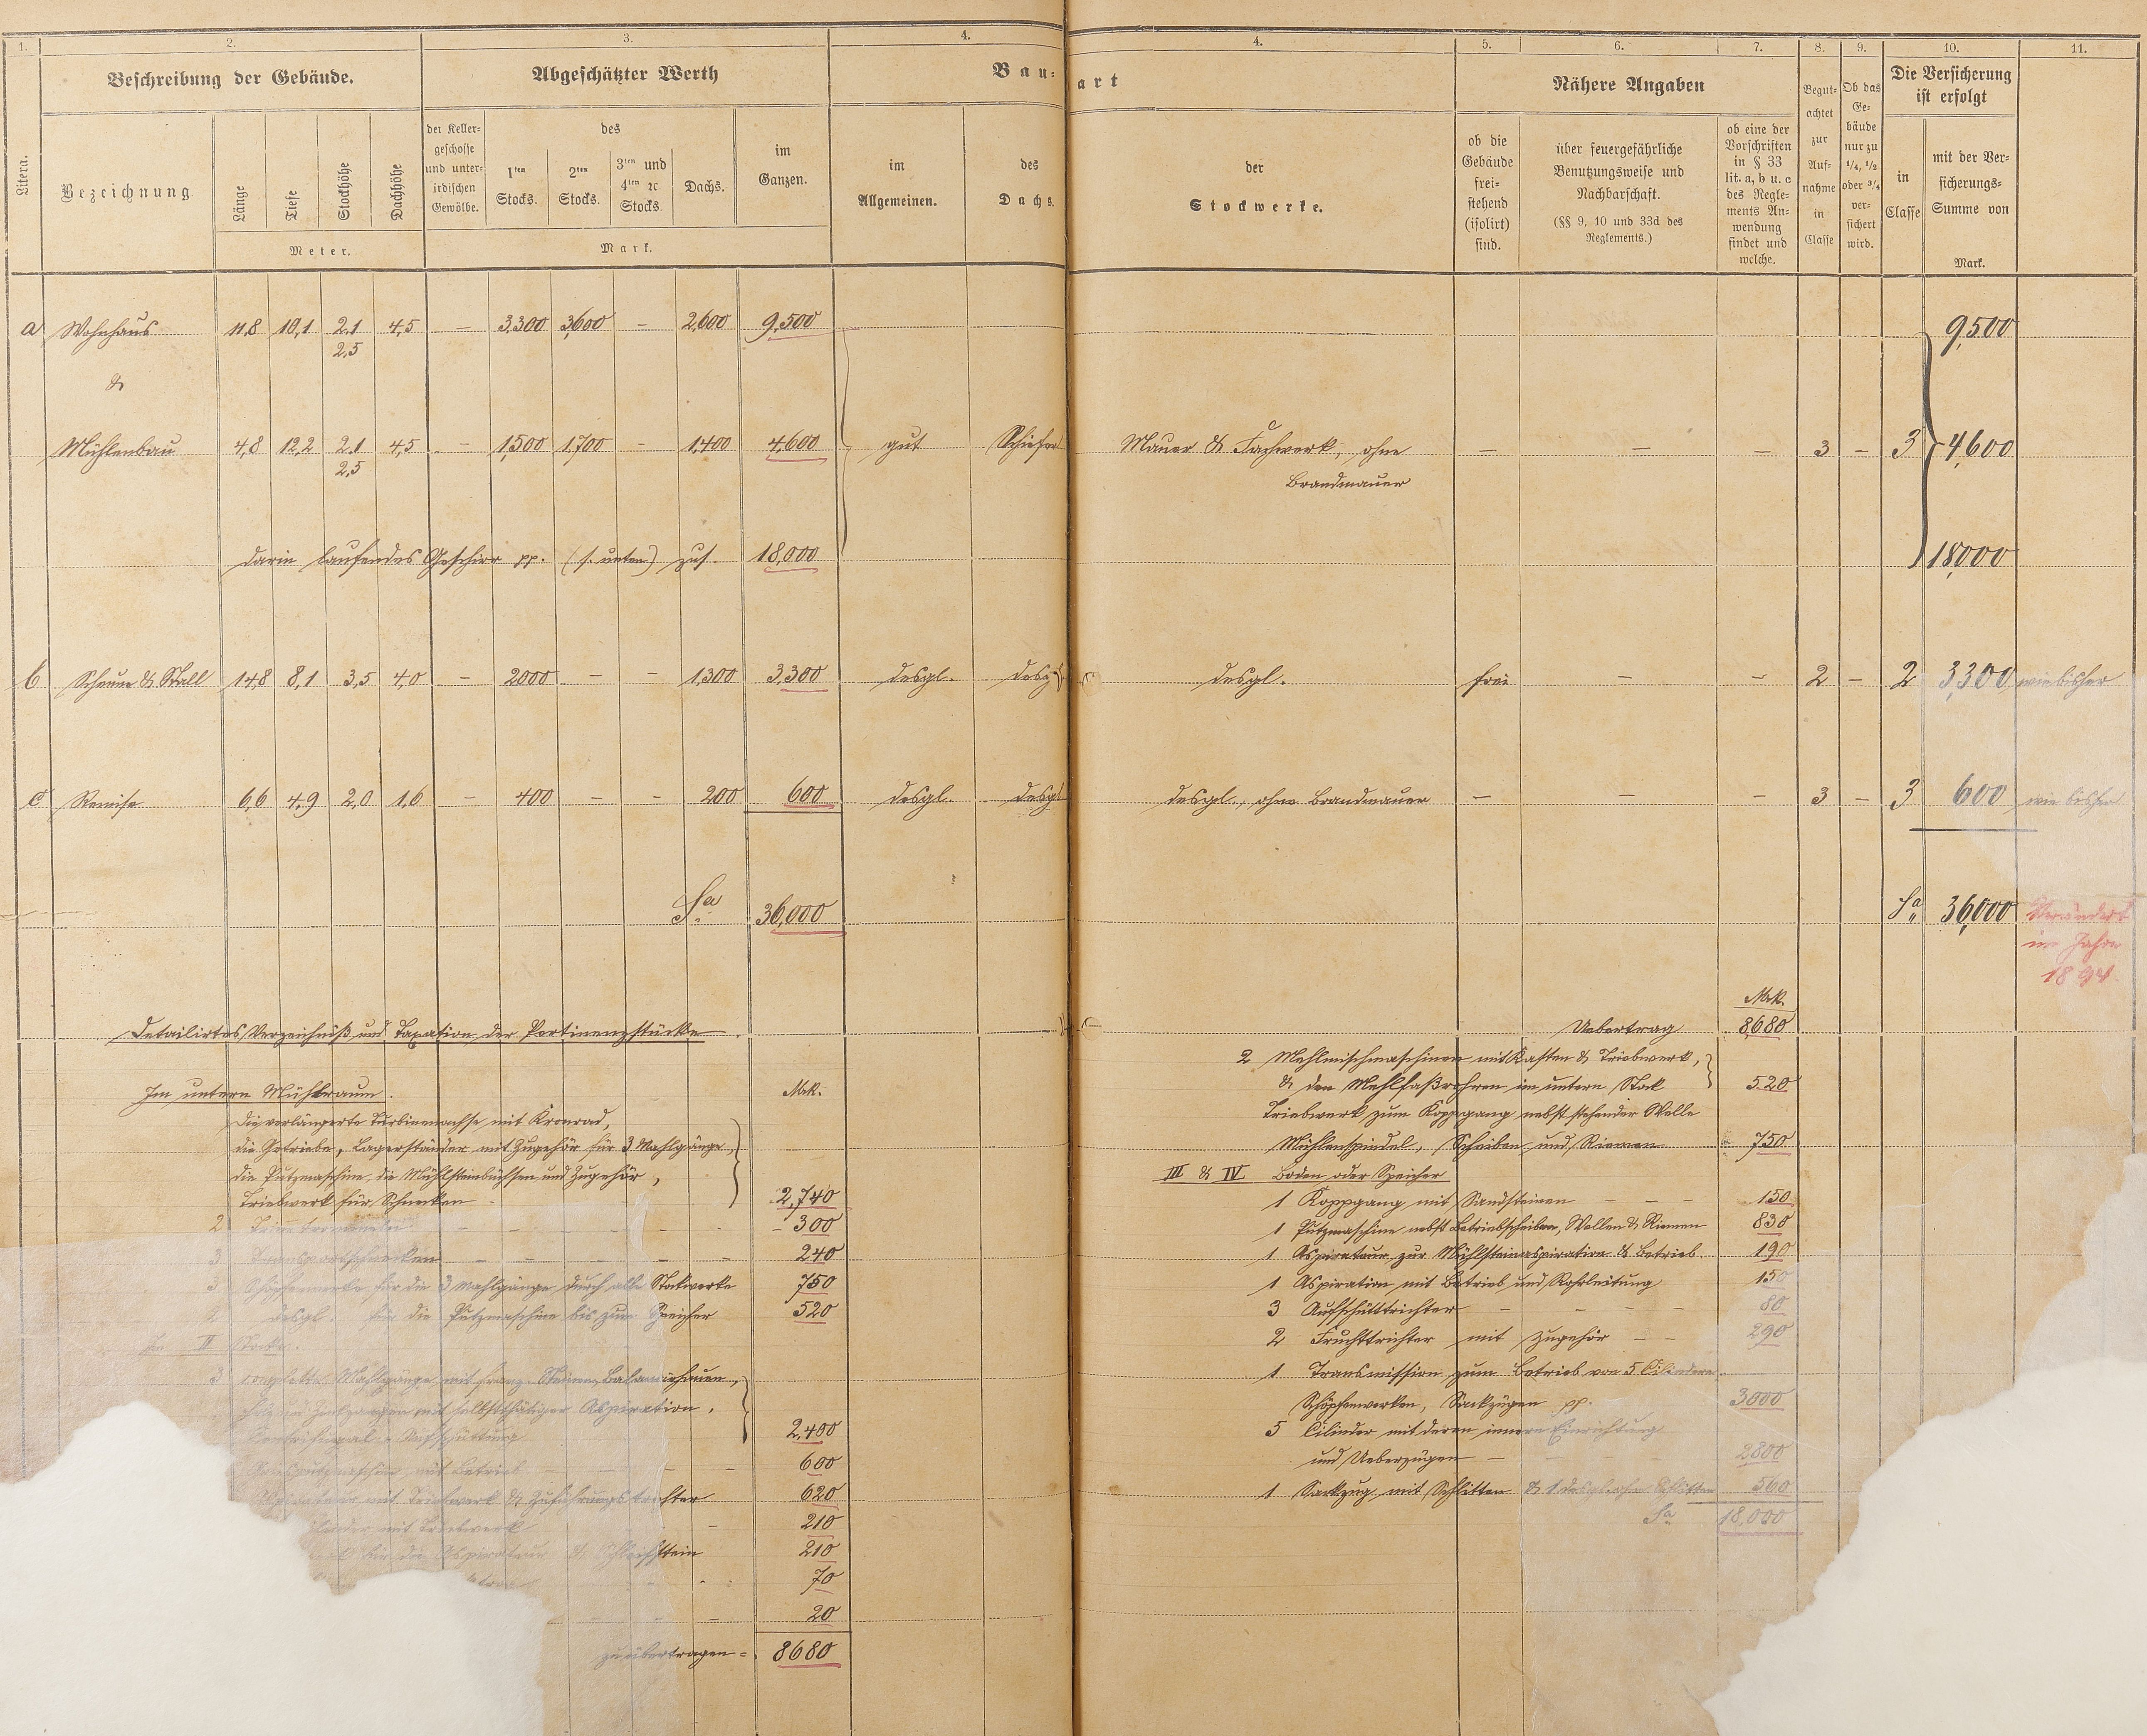 1. 2. 3. 4. 4. 5. 6. 7. 8. 9. 10. 11.
Beschreibung der Gebäude. Abgeschätzter Werth Bau- art Nähere Angaben Die Versicherung
ist erfolgt
Litera. Bezeichnung. Länge Tiefe Stockhöhe Dachhöhe
Meter.
der Keller-
geschosse
und unter-
irdischen
Gewölbe.
des
1ten
Stocks.
2ten
Stocks.
3ten und
4ten ꝛc
Stocks.
Dachs.
im
Ganzen.
Mark.
im
Allgemeinen.
des
Dachs.
der
Stockwerke.
ob die
Gebäude
frei-
stehend
(isolirt)
sind.
über feuergefährliche
Benutzungsweise und
Nachbarschaft.
(§§ 9, 10 und 33d des
Reglements.)
ob eine der
Vorschriften
in § 33
lit. a, b u. c
des Regle-
ments An-
wendung
findet und
welche.
Begut-
achtet
zur
Auf-
nahme
in
Classe
Ob das
Ge-
bäude
nur zu
1/4, 1/2
oder 3/4
ver-
sichert
wird.
in
Classe
mit der Ver-
sicherungs-
Summe von
Mark.
a Wohnhaus 11,8 10,1 2,1 4,5 – 3,300 3,600 – 2,600 9,500 9,500
2,5
&
Mühlenbau 4,8 12,2 2,1 4,5 – 1,500 1,700 – 1,400 4,600 gut Schiefer Mauer & Fachwerk, ohne – – – 3 – 3 4,600
2,5 Brandmauer
darin laufendes Geschirr pp. (s. unten) zus. 18,000 18,000
b Scheune & Stall 14,8 8,1 3,5 4,0 – 2000 – – 1,300 3,300 desgl. desgl. desgl. frei – – 2 – 2 3,300 wie bisher
c Remise 6,6 4,9 2,0 1,6 – 400 – – 200 600 desgl. desgl desgl., ohne Brandmauer – – – 3 – 3 600 wie bisher
Sa 36,000 Sa 36,000 Verändert
im Jahre
1894.
Detailirtes Verzeichniß und Taxation der Pertinenzstücke
Im untern Mühlraum. Mk.
Die verlängerte Turbinenachse mit Kronrad,
die Getriebe, Lagerständer mit Zugehör für 3 Mahlgänge,
die Putzmaschine, die Mühlsteinbüchsen und Zugehör,
Triebwerk für Schnecken 2,740
2 300
3 Transportschnecken – – – – – 240
3 Schöpfenwerke für die 3 Mahlgänge durch alle Stockwerke 750
2 desgl. für die Putzmaschine bis zum Speicher 520
Im II Stocke.
3 complette Mahlgänge mit franz. Steinen, Balancirhauen,
mit selbstthätiger Aspiration,
Centrifugal-Aufschüttung 2,400
mit Betrieb – – – 600
mit Triebwerk & Zuführungstrichter 620
mit Triebwerk – 210
für die & Schleifstein 210
70
– – 20
zu übertragen = 8680
Mk.
Uebertrag 8,680
2 Mehlmischmaschinen mit Kasten & Triebwerk,
& den Mehlfaßrohren im untern Stock 520
Triebwerk zum Koppgang nebst stehender Welle
Mühlenspindel, Scheiben und Riemen 750
III & IV Boden oder Speicher
1 Koppgang mit Sandsteinen – – – 150
1 Putzmaschine nebst Betriebscheiben, Wellen & Riemen 830
1 Aspirateur zur Mühlsteinaspiration & Betrieb 190
1 Aspiration mit Betrieb und Rohrleitung 150
3 Aufschütttrichter – – – – 80
2 Fruchttrichter mit Zugehör – – 290
1 Transmission zum Betrieb von 5 Cilindern
Schöpfenwerken, Sackzügen pp. 3000
5 Cilinder mit deren innern Einrichtung
und Ueberzügen – – – – 2800
1 Sackzug mit Schlitten & 1 Schlitten 560
Sa 18,000